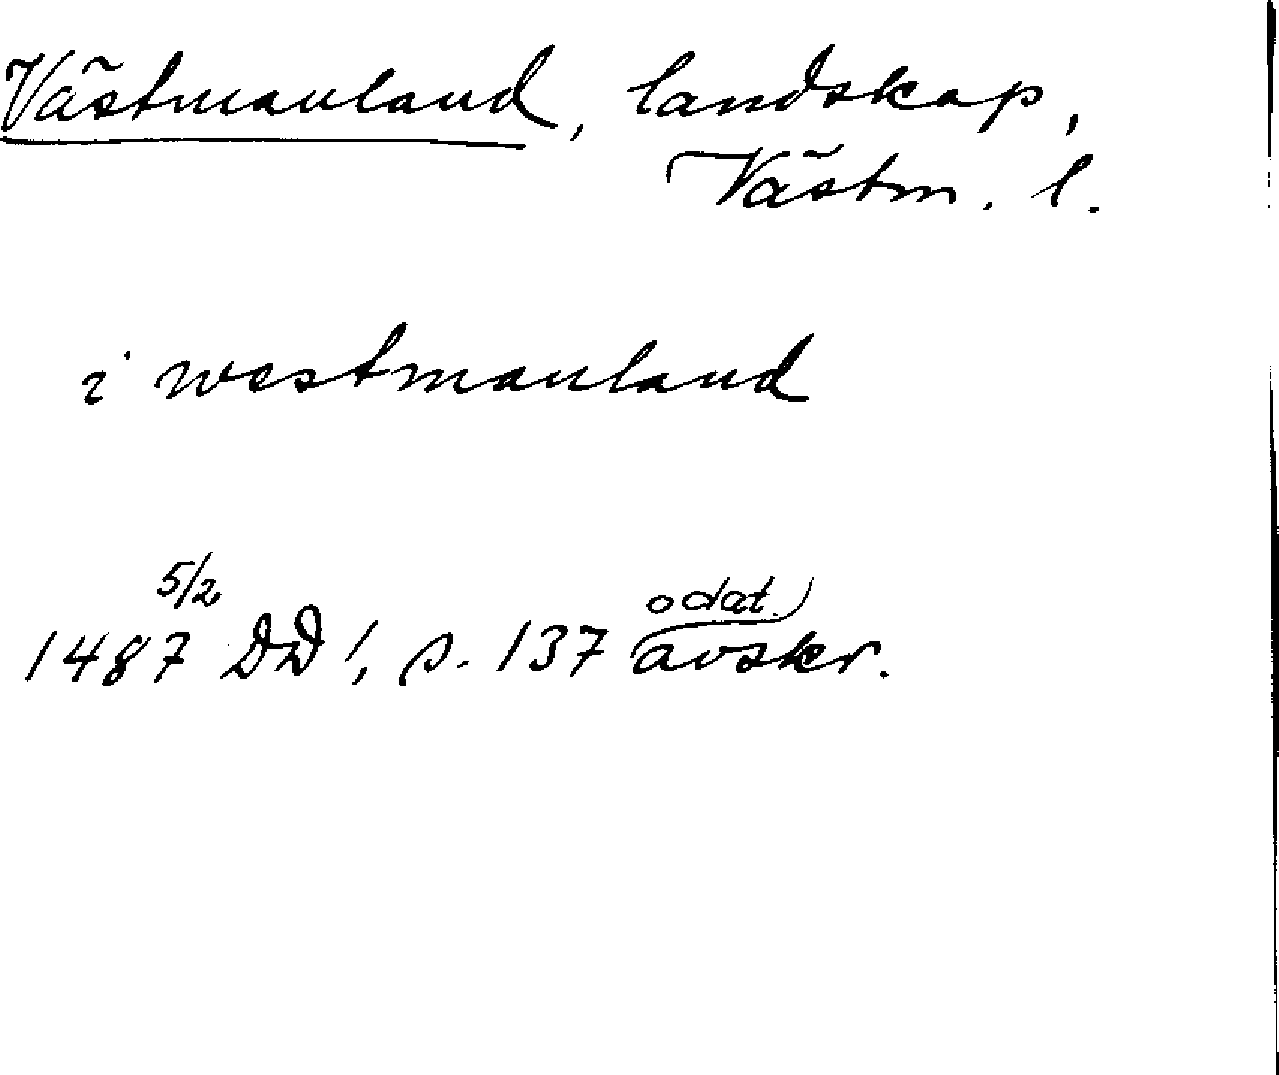 Västmanland, landskap,
Västm. l.
i westmanland
1487 5/2 DD 1, s. 137 odat. avskr.